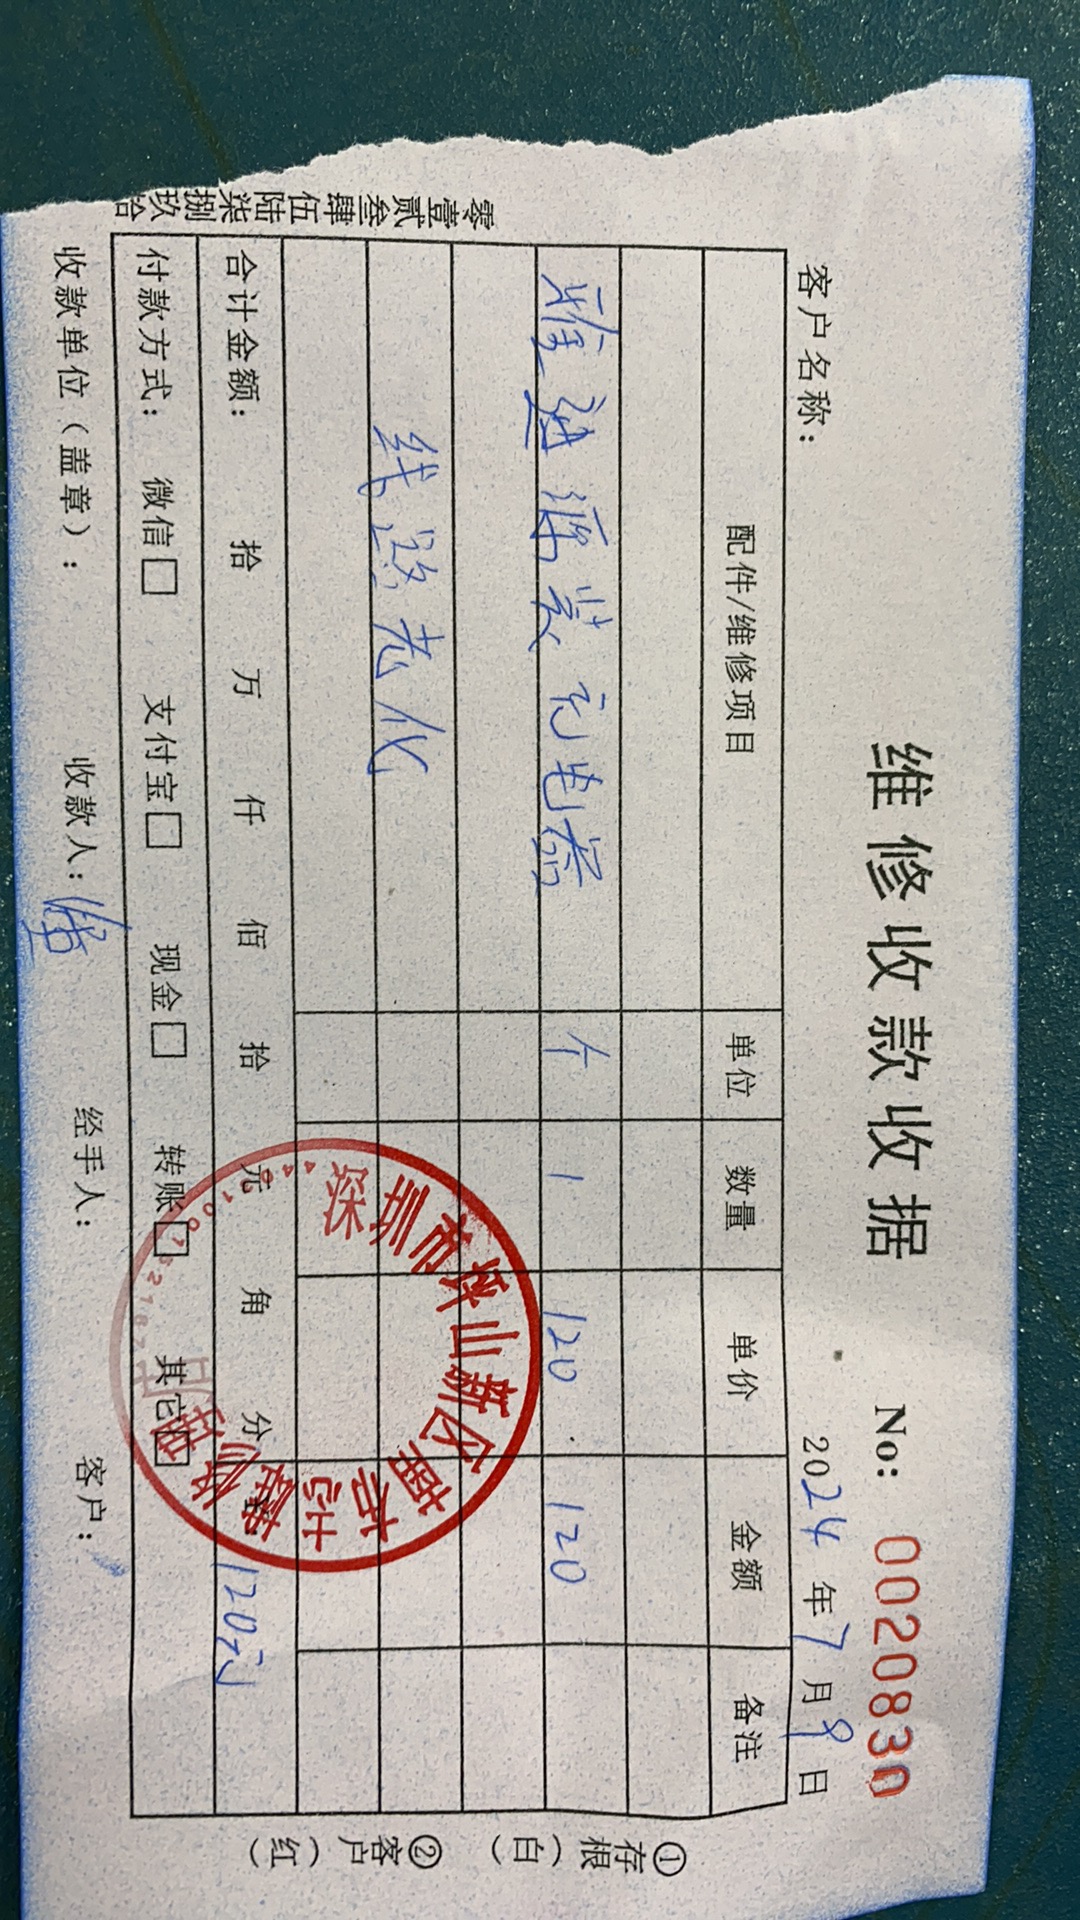 维修收款收据
No: 0020830
客户名称: 2024年7月9日
配件/维修项目 单位 数量 单价 金额 备注
雅迪原装充电器 个 1 120 120
线路老化
合计金额: 拾 万 仟 佰 拾 元 角 分 120元
付款方式: 微信□ 支付宝□ 现金□ 转账□ 其它□
收款单位(盖章): 收款人: 经手人: 客户:
零壹贰叁肆伍陆柒捌玖拾
①存根(白) ②客户(红)
深圳市坪山新区